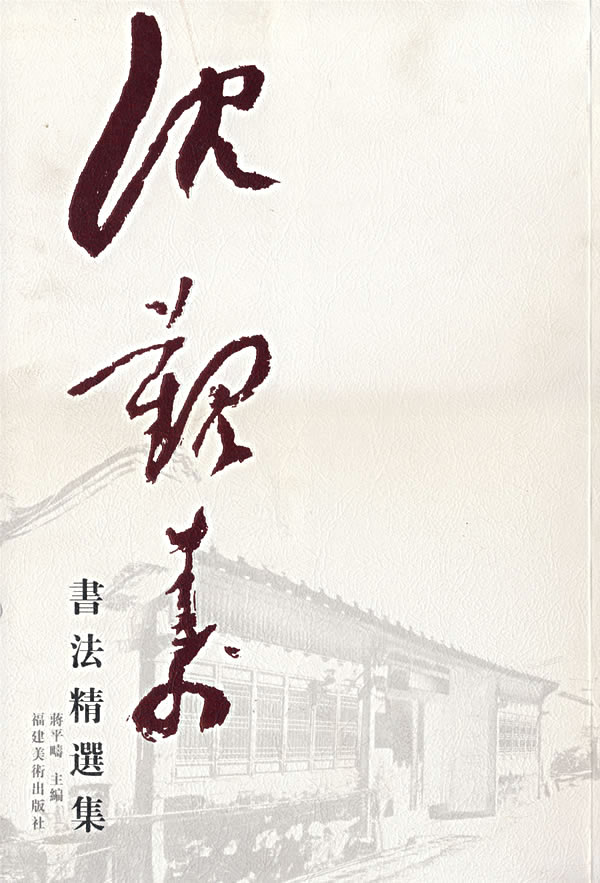 沈覲壽
書法精選集
蔣平疇 主編
福建美術出版社